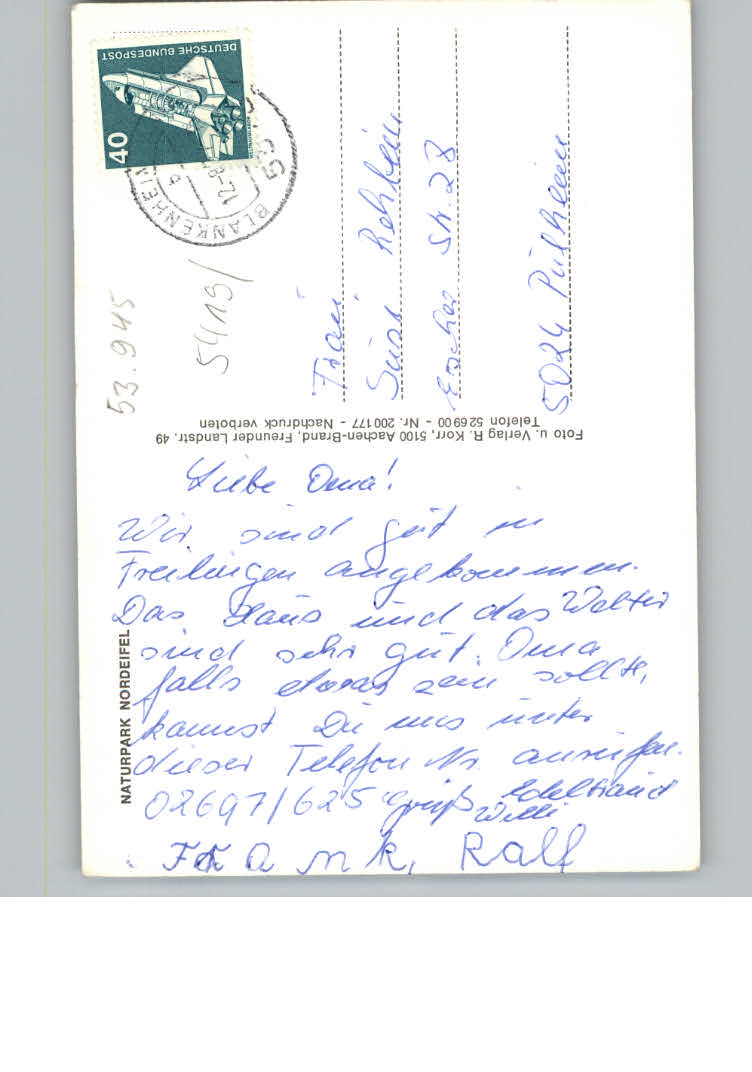 Liebe Oma!
Wir sind gut in
Freilingen angekommen.
Das Haus und das Wetter
sind sehr gut. Oma
falls etwas sein sollte,
kannst Du uns unter
dieser Telefon Nr. anrufen.
02697/625 Gruß Edeltraud
Willi
Frank, Ralf
NATURPARK NORDEIFEL
Foto u. Verlag R. Korr, 5100 Aachen-Brand, Freunder Landstr. 49
Telefon 52 69 00 - Nr. 200 177 - Nachdruck verboten
Frau
Susi
Escher Str. 28
5024 Pulheim
DEUTSCHE BUNDESPOST
40
BLANKENHEIM
53.945
5419/